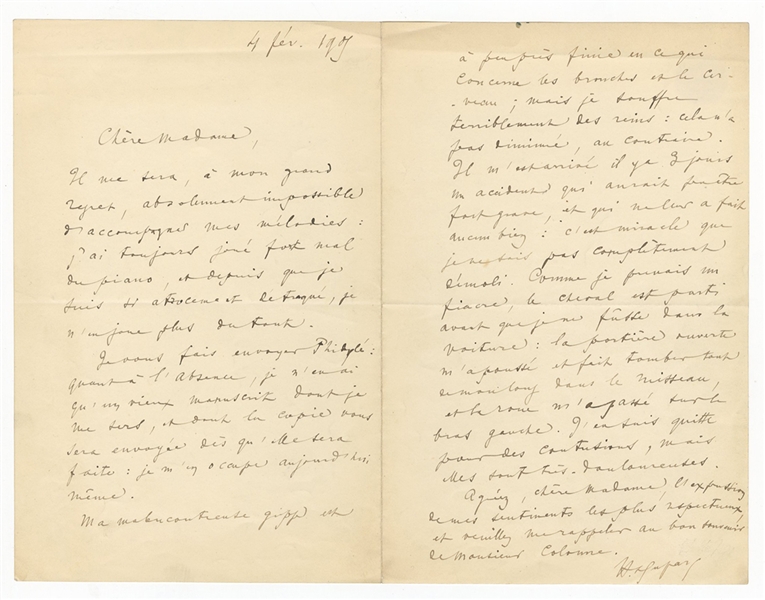 4 fév. 1905
Chère Madame,
Il me sera, à mon grand
regret, absolument impossible
d'accompagner mes mélodies :
j'ai toujours joué fort mal
du piano, et depuis que je
suis si atrocement detraqué, je
n'en joue plus du tout.
Je vous fais envoyer Phidylé :
quant à l'Absence, je n'en ai
qu'un vieux manuscrit dont je
me sers, et dont la copie vous
sera envoyée dès qu'elle sera
faite : je m'en occupe aujourd'hui
même.
Ma malencontreuse gripp est
à peu près finie en ce qui
concerne les bronches et le cer-
-veau ; mais je souffre
terriblement des reins : cela n'a
pas diminué, au contraire.
Il m'est arrivé il y a 3 jours
un accident qui aurait pu être
fort grave, et qui ne leur a fait
aucun bien : c'est miracle que
je ne sois pas complètement
démoli. Comme je prenais un
fiacre, le cheval est parti
avant que je ne fusse dans la
voiture : la portière ouverte
m'a poussé et fait tomber tout
de mon long dans le ruisseau,
et la roue m'a passé sur le
bras gauche. J'en suis quitte
pour des contusions, mais
elles sont très-douloureuses.
Agréez, chère Madame, l'expression
de mes sentiments les plus respectueux,
et veuillez me rappeler au bon souvenir
de Monsieur Colonne.
H. Duparc